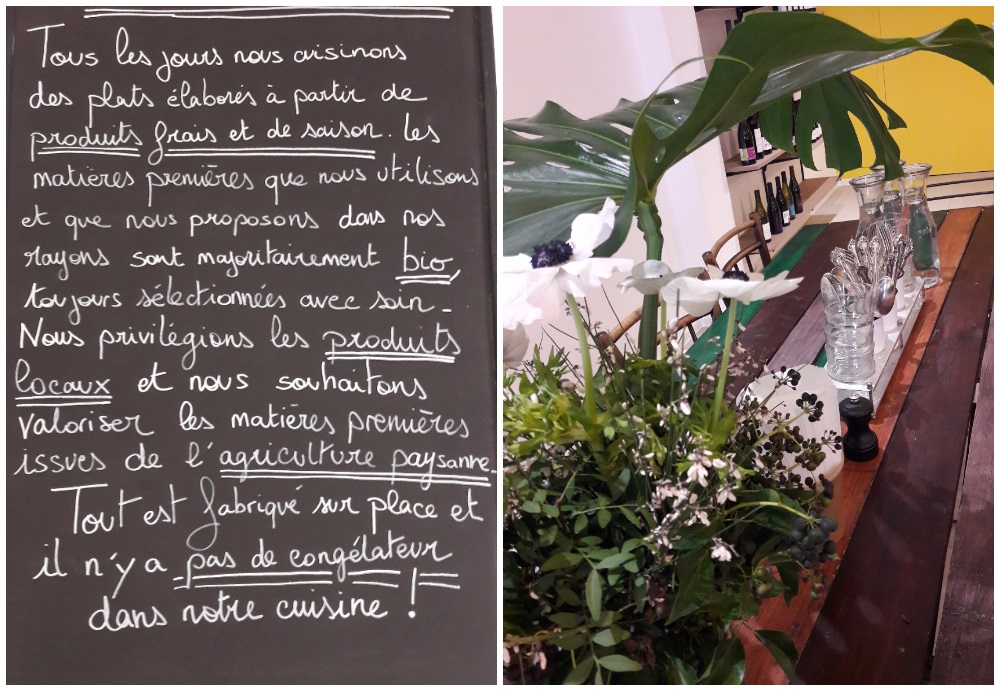 Tous les jours nous cuisinons
des plats élaborés à partir de
produits frais et de saison. Les
matières premières que nous utilisons
et que nous proposons dans nos
rayons sont majoritairement bio,
toujours sélectionnées avec soin.
Nous privilégions les produits
locaux et nous souhaitons
valoriser les matières premières
issues de l'agriculture paysanne.
Tout est fabriqué sur place et
il n'y a pas de congélateur
dans notre cuisine !